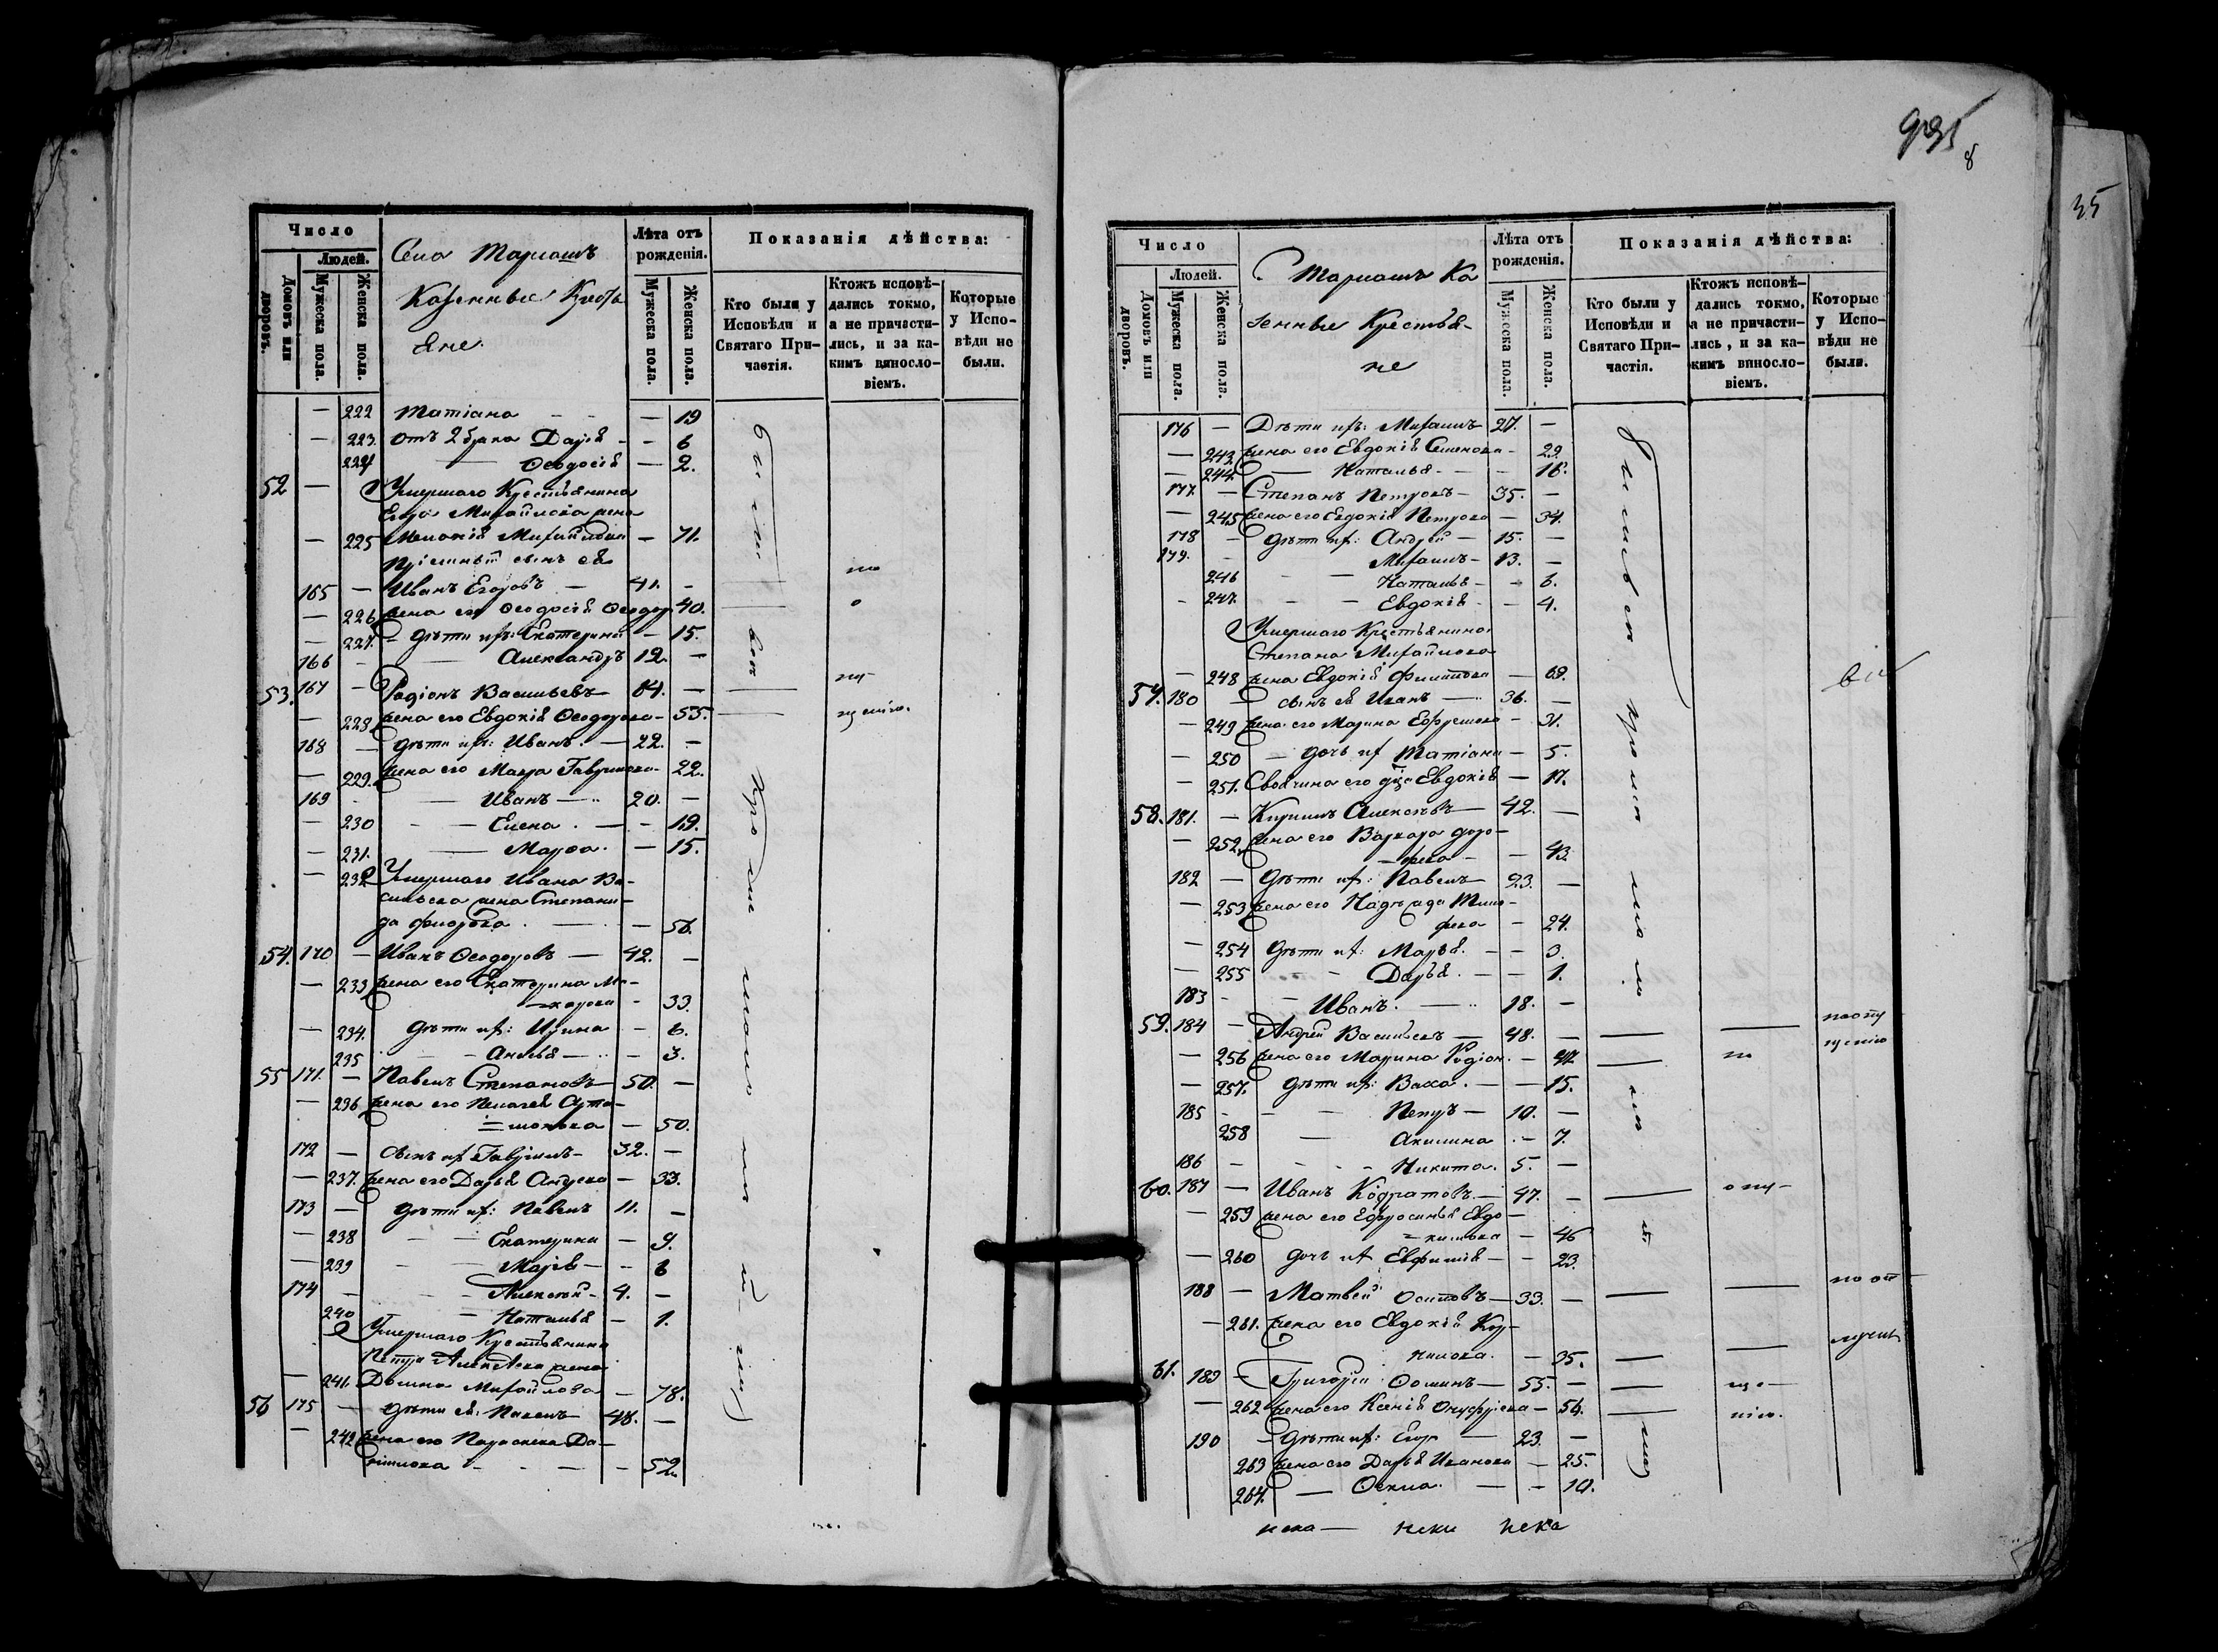 Число
Людей.
Домовъ или дворовъ.
Мужеска пола.
Женска пола.
Села Тарлашъ
Казенные Кресть
яне
Лѣта отъ рожденія.
Мужеска пола.
Женска пола.
Показанія дѣйства:
Кто были у Исповѣди и Святаго Причастія.
Ктожъ исповѣдались токмо, а не причастились, и за какимъ винословіемъ.
Которые у Исповѣди не были.
— 222 Татіана — 19
— 223. отъ 2 брака Дарья — 6
224 — Ѳеодосія — 2.
52 — Умершаго Крестьянина
Егора Михайлова жена
— 225 Михайлова — 71.
Пріемный сынъ ея
165 — Иванъ Егоровъ — 41. —
— 226 жена его Ѳеодосія Ѳеодор. 40.
— 227. дѣти ихъ: Екатерина — 15.
166 — Александръ 12. —
53. 167 — Радіонъ Васильевъ 64. —
— 228 жена его Евдокія Ѳеодорова — 53.
168 — дѣти ихъ: Иванъ — 22. —
— 229. жена его Мавра Гаврилова — 22.
169 — Иванъ — 20. —
— 230 — Елена — 19.
— 231. — Марѳа — 15.
— 232 Умершаго Ивана Ва-
сильева жена Степани-
да — 56.
54. 170 — Иванъ Ѳеодоровъ — 42. —
— 233 жена его Екатерина Ма-
карова — 33.
— 234. дѣти ихъ: Ирина — 6.
235 — 3.
55 171. — Павелъ Степановъ 50. —
— 236 жена его Пелагея Арта-
монова — 50.
172 — сынъ ихъ Гаврилъ 32. —
— 237. жена его Дарья Андреева — 33.
173 — дѣти ихъ: Павелъ 11. —
— 238 — Екатерина — 9.
— 239 — Марія — 6
174 — Алексѣй 4. —
240 — Наталья — 1.
Умершаго Крестьянина
Петра Алексѣева жена
— 241. Домна Михайлова — 78.
56 175 — дѣти ея: Павелъ 48. —
— 242 жена его Параскева Да-
нилова — 52.
935
8
35
Число
Людей.
Домовъ или дворовъ.
Мужеска пола.
Женска пола.
С. Тарлашъ Ка
зенные Крестья-
не
Лѣта отъ рожденія.
Мужеска пола.
Женска пола.
Показанія дѣйства:
Кто были у Исповѣди и Святаго Причастія.
Ктожъ исповѣдались токмо, а не причастились, и за какимъ винословіемъ.
Которые у Исповѣди не были.
176 — Дѣти ихъ: Михаилъ 27. —
— 243 жена его Евдокія Семенова — 29.
— 244 — Наталья — 16.
177. — Степанъ Петровъ — 35. —
— 245 жена его Евдокія Петрова — 34.
178 — дѣти ихъ: Андрей — 15. —
179. — Михаилъ — 13. —
246 — Наталья — 6.
— 247. — Евдокія — 4.
Умершаго Крестьянина
Степана Михайлова
— 248 жена Евдокія Филипова — 69.
57. 180 — сынъ ея Иванъ — 36. —
— 249 жена его Марина Ефремова — 31.
— 250 — дочь ихъ Татіана — 5.
— 251. Своячина его Евдокія — 17.
58. 181. — Кирилъ Алексѣевъ — 42. —
— 252 жена его Варвара Доро-
феева — 43.
182 — дѣти ихъ: Павелъ 23. —
— 253 жена его Надежда Тимо-
феева — 24.
— 254 дѣти ихъ: Марья — 3.
— 255 — Дарья — 1.
183 — Иванъ — 18. —
59. 184 — Андрей Васильевъ — 48. —
— 256 жена его Марина Родіон. — 47
— 257. дѣти ихъ: Васса — 15.
185 — Петръ — 10. —
258 — Акилина — 7.
186 — Никита. 5. —
60. 187 — Иванъ Кодратовъ — 47. —
— 259 жена его Ефросинья Евдо-
кимова — 46
— 260 дочь ихъ Евфимія — 23.
188 — Матвей Осиповъ — 33. —
— 261. жена его Евдокія Кор-
нилова. — 35.
61. 189 — Григорій Ѳоминъ — 55. —
— 262 жена его Ксенія Онуфріева — 56.
190 — дѣти ихъ: Егор — 23. —
263 жена его Дарья Иванова — 25.
264. — Ѳекла — 10.